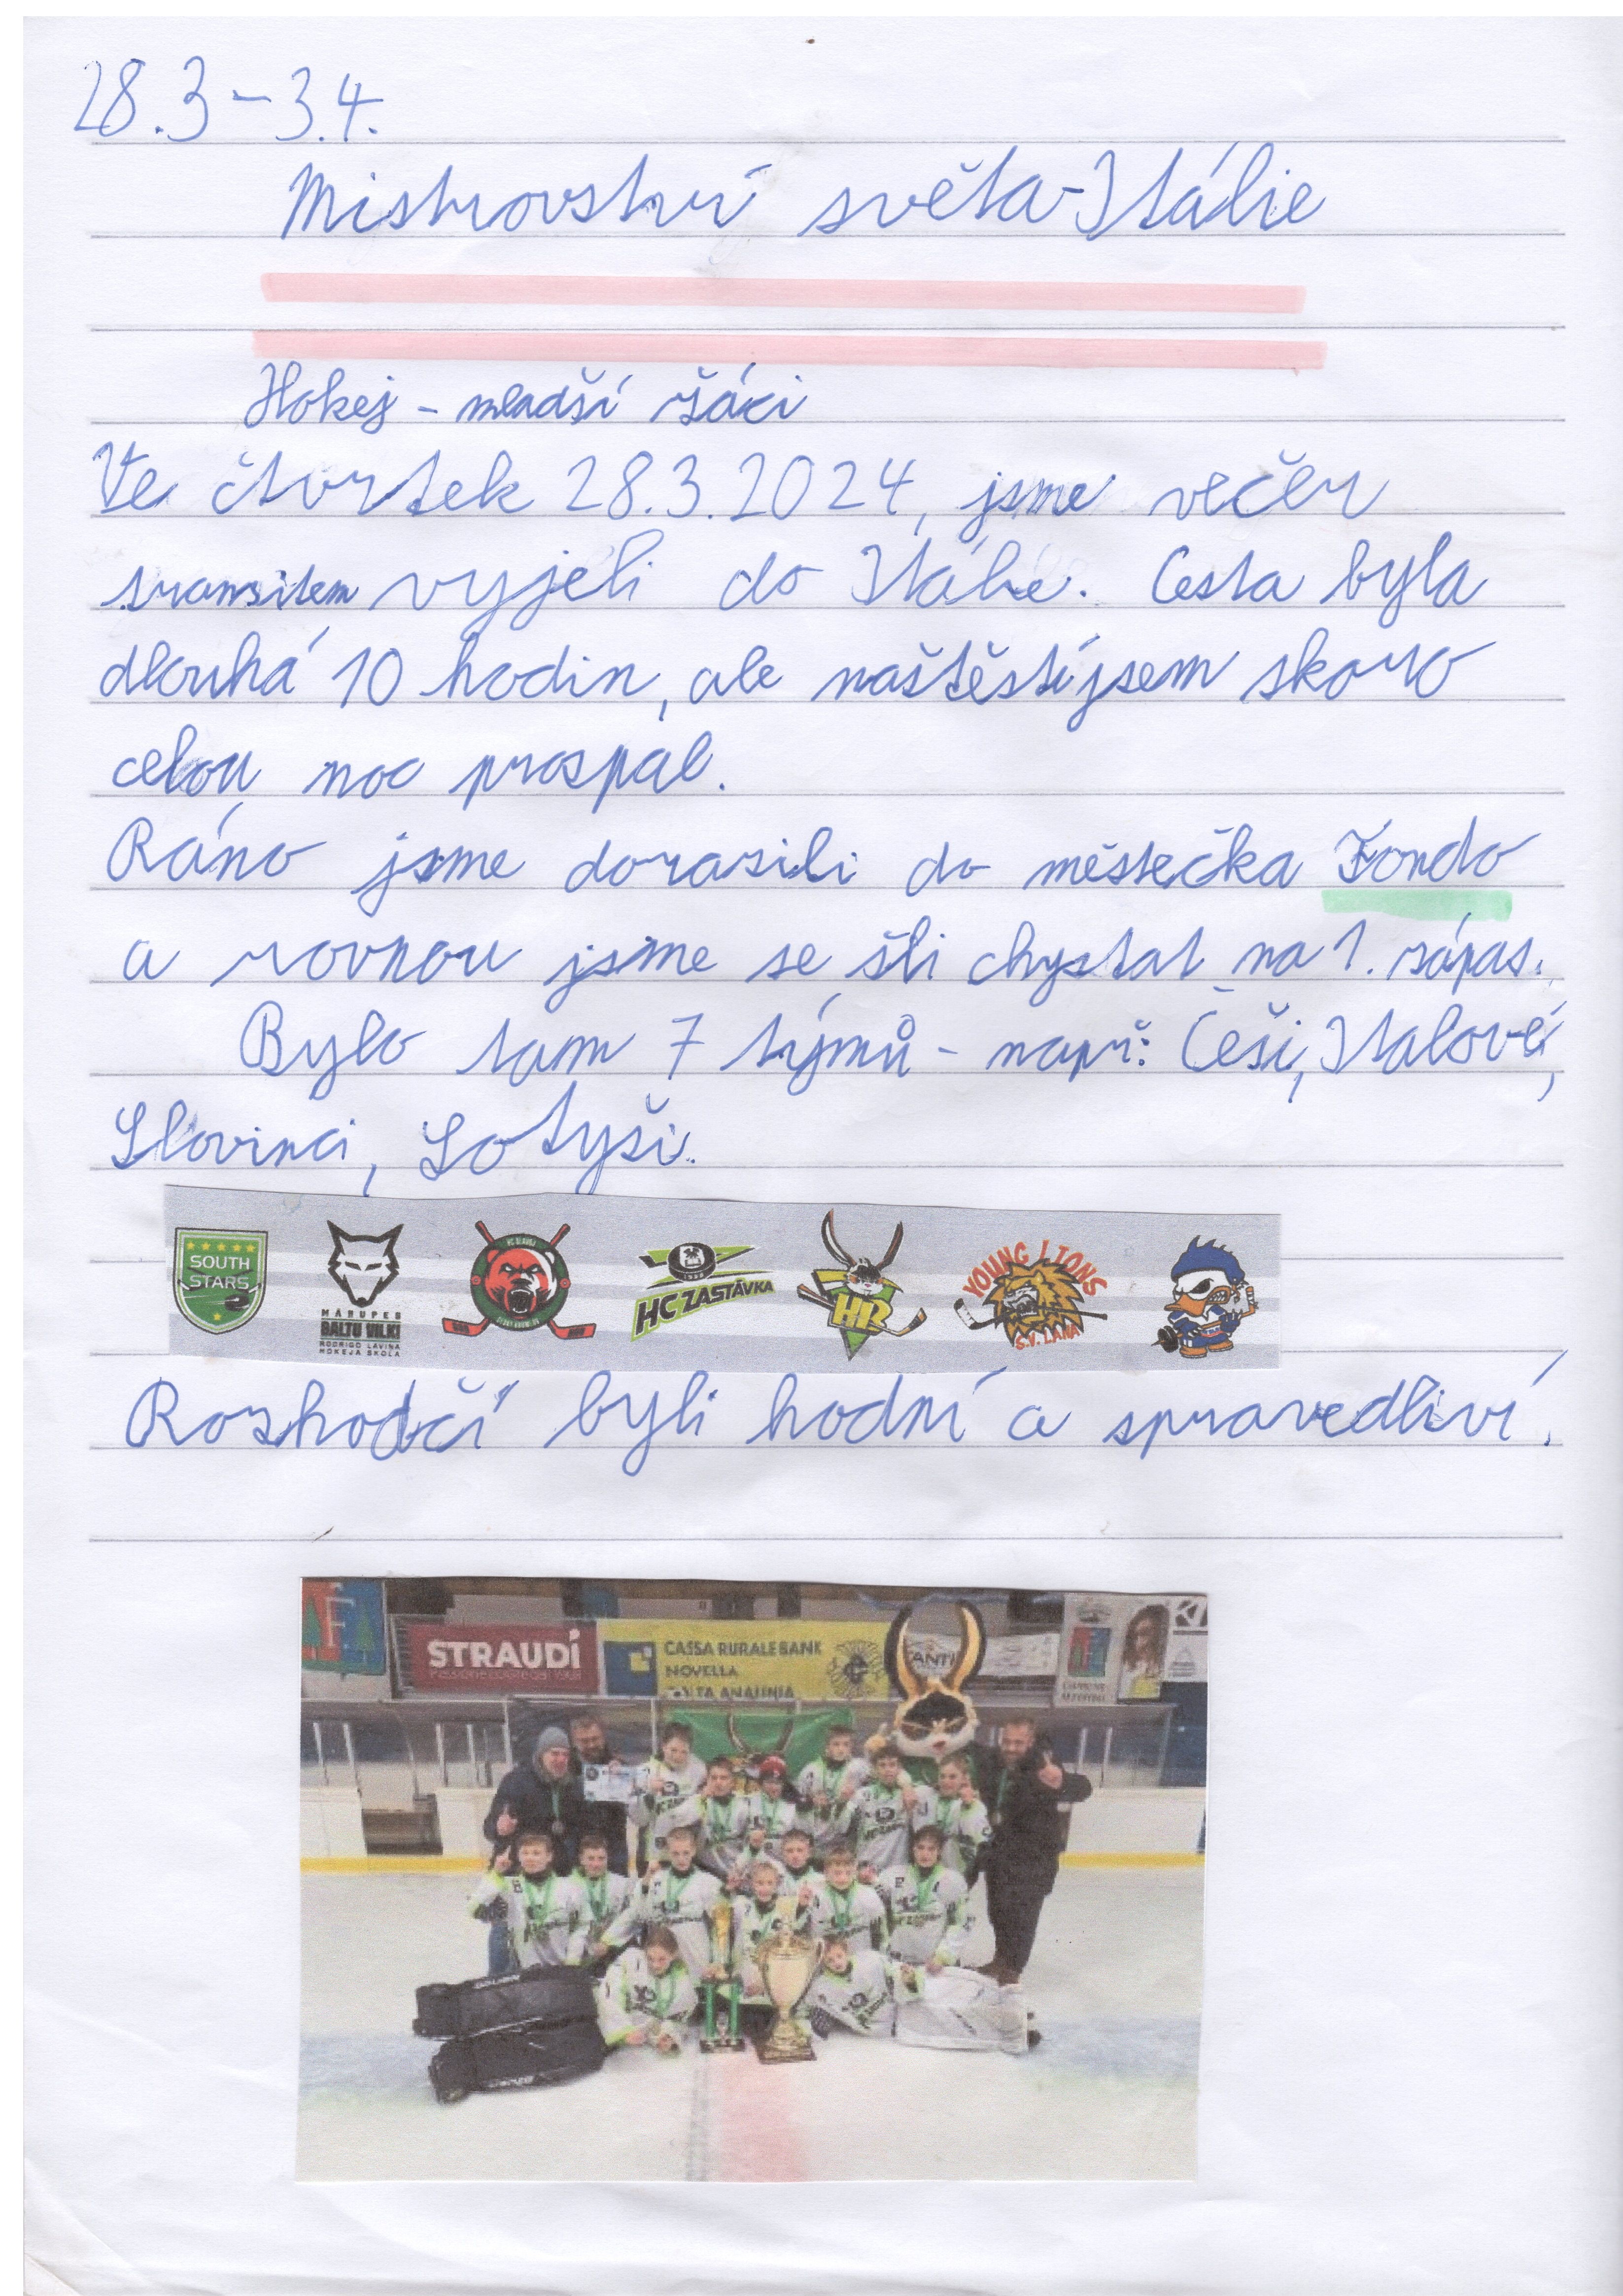 28.3 - 3.4.
Mistrovství světa - Itálie
Hokej - mladší žáci
Ve čtvrtek 28.3.2024, jsme večer
tranzitem vyjeli do Itálie. Cesta byla
dlouhá 10 hodin, ale naštěstí jsem skoro
celou noc prospal.
Ráno jsme dorazili do městečka Fondo
a rovnou jsme se šli chystat na 1. zápas.
Bylo tam 7 týmů - např: Češi, Italové,
Slovinci, Lotyši.
SOUTH
STARS
MĀRUPES
BALTU VILKI
RODRIGO LAVIŅA
HOKEJA SKOLA
HC ZASTÁVKA
HR
YOUNG LIONS
S.V. LANA
Rozhodčí byli hodní a spravedliví.
STRAUDI
CASSA RURALE BANK
NOVELLA
ALTA ANAUNIA